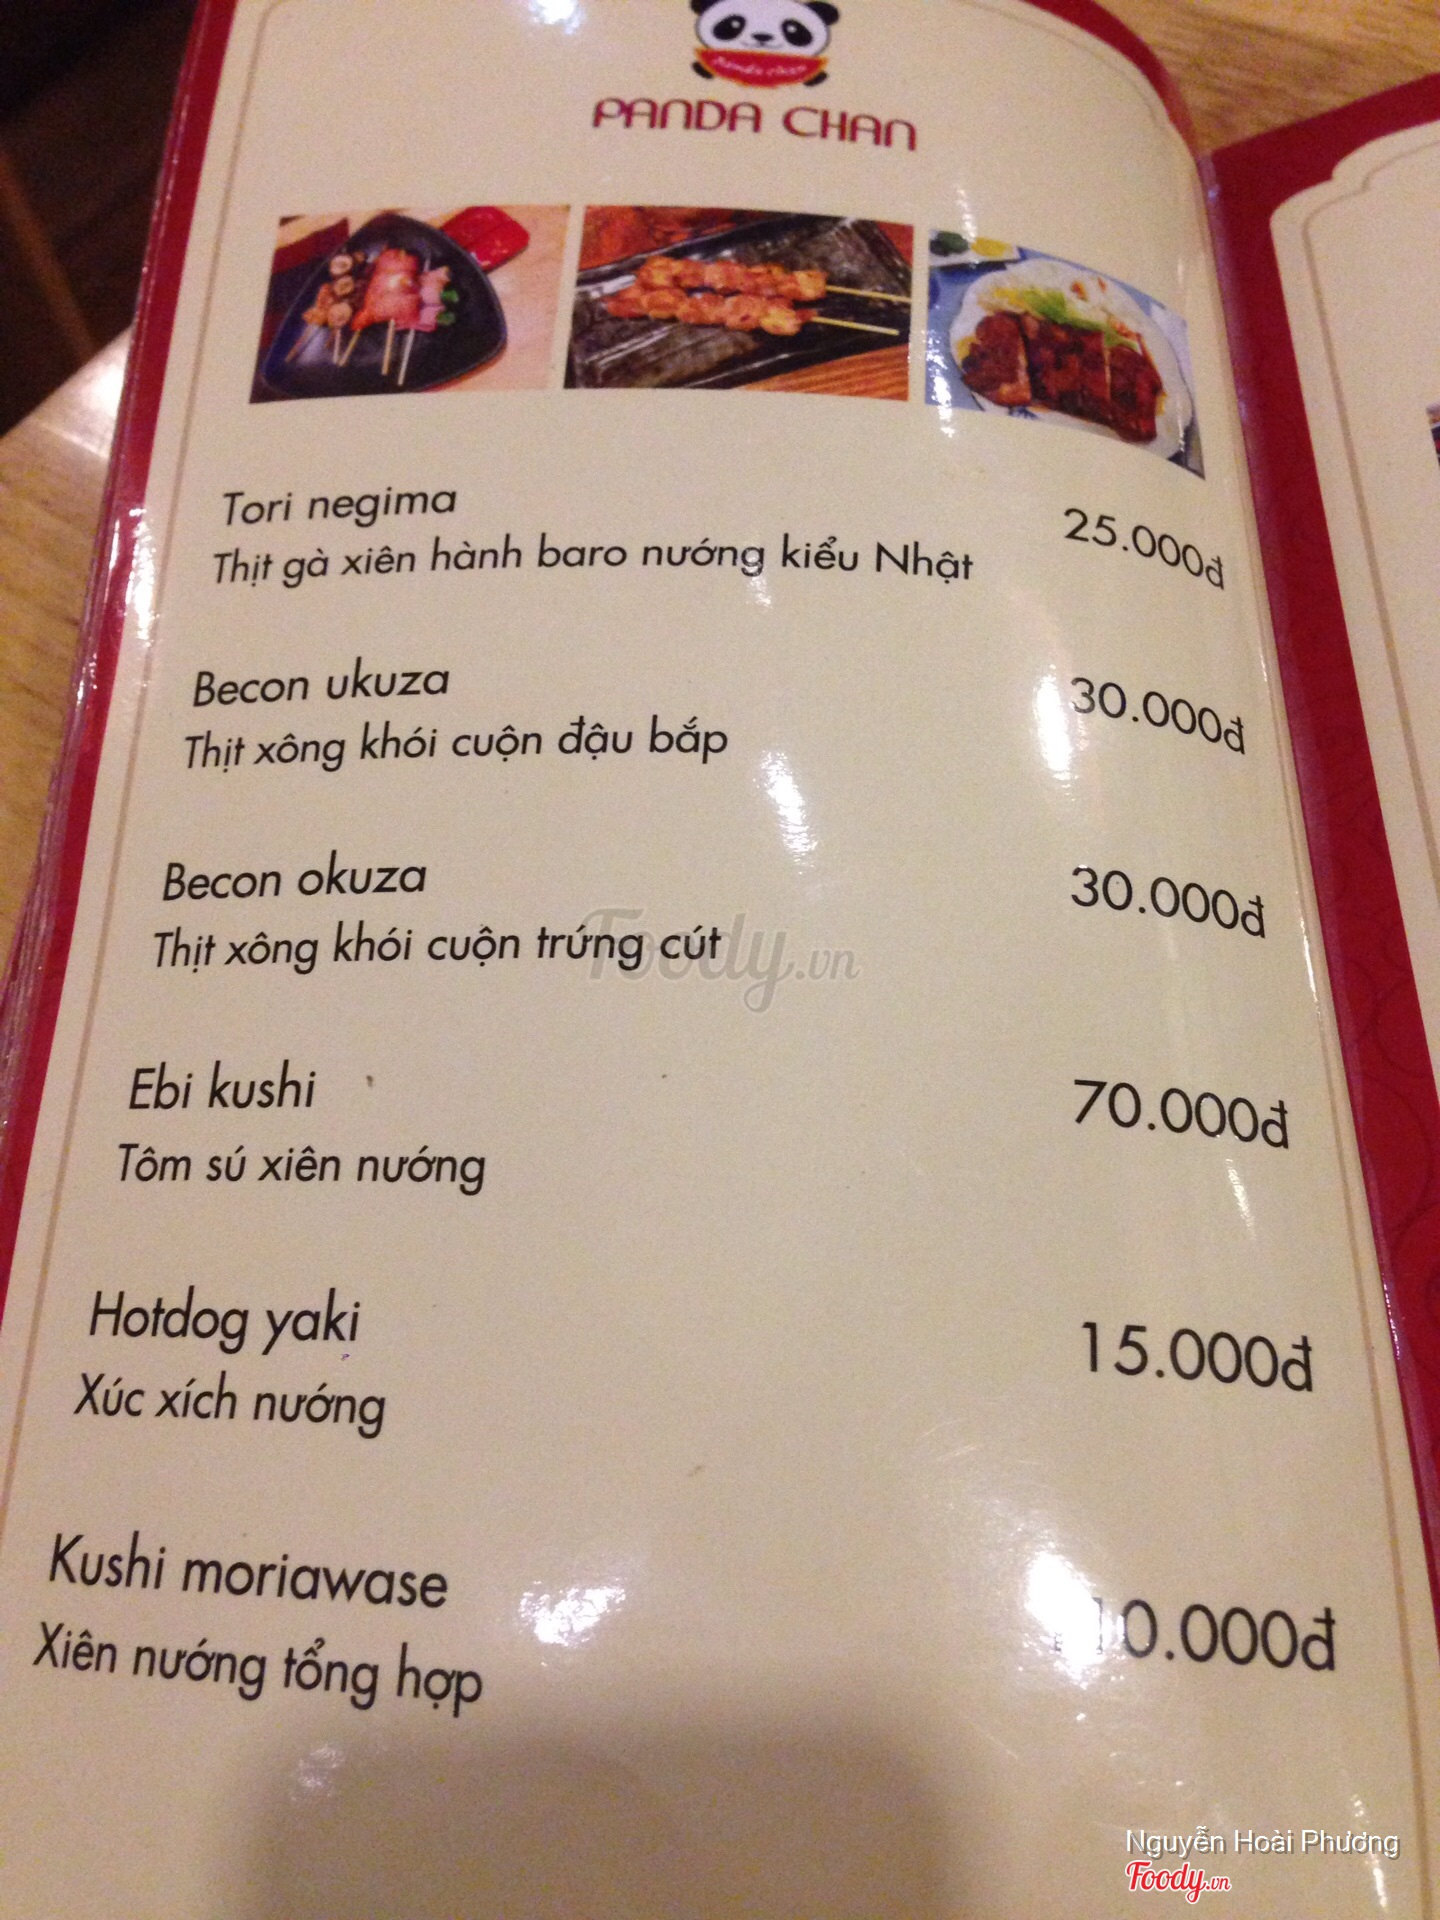 PANDA CHAN
Tori negima 25.000đ
Thịt gà xiên hành baro nướng kiểu Nhật
Becon ukuza 30.000đ
Thịt xông khói cuộn đậu bắp
Becon okuza 30.000đ
Thịt xông khói cuộn trứng cút
Foody.vn
Ebi kushi 70.000đ
Tôm sú xiên nướng
Hotdog yaki 15.000đ
Xúc xích nướng
Kushi moriawase
Xiên nướng tổng hợp
Nguyễn Hoài Phương
Foody.vn